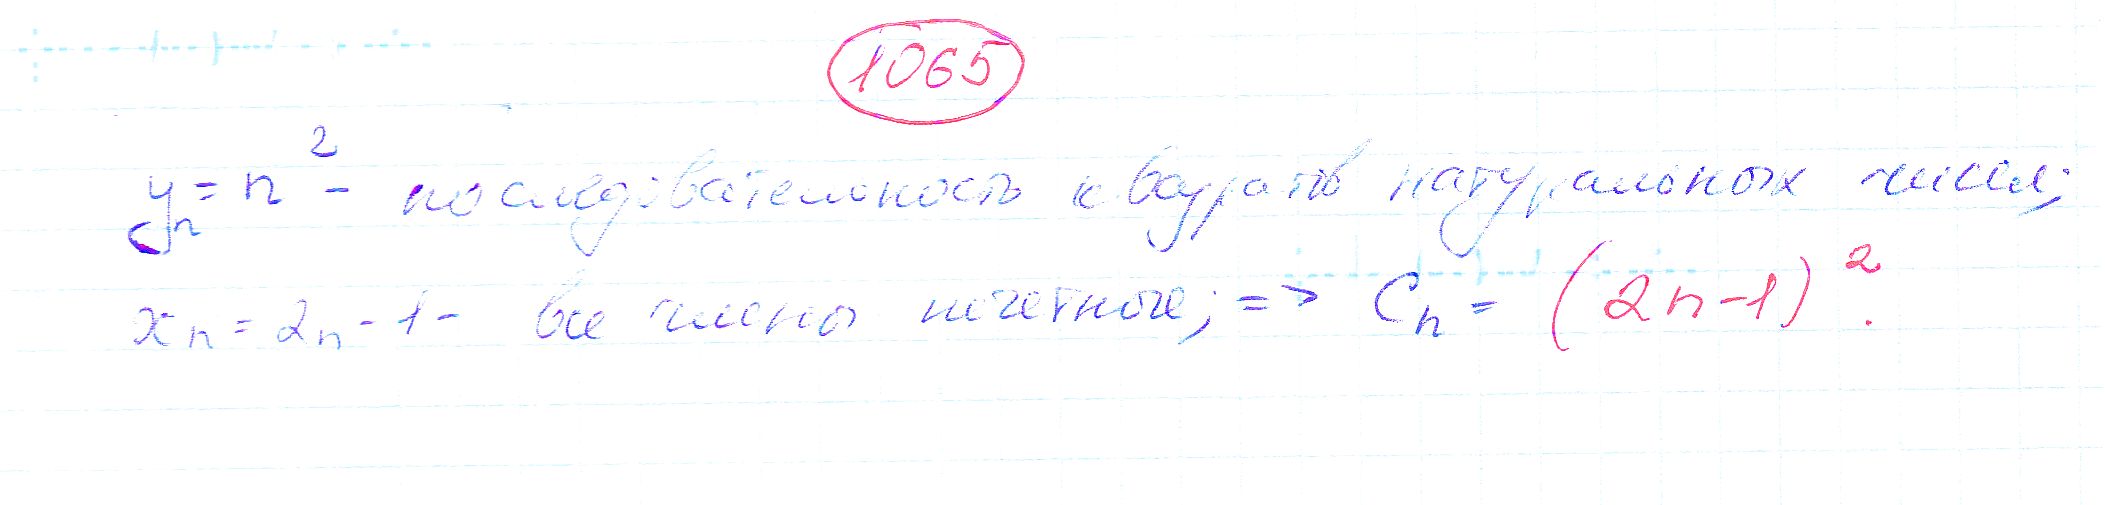 1065
yₙ = n² - последовательность квадратов натуральных чисел;
xₙ = 2n - 1 - все члены нечетные; => Cₙ = (2n-1)².